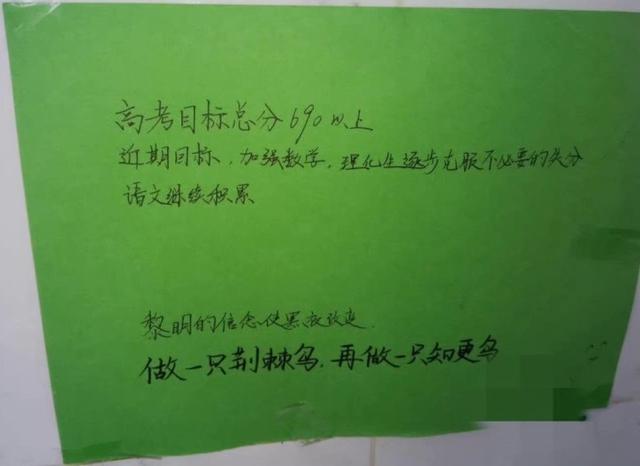 高考目标总分690以上
近期目标，加强数学，理化生逐步克服不必要的失分
语文继续积累
黎明的信念使黑夜改变
做一只荆棘鸟，再做一只知更鸟